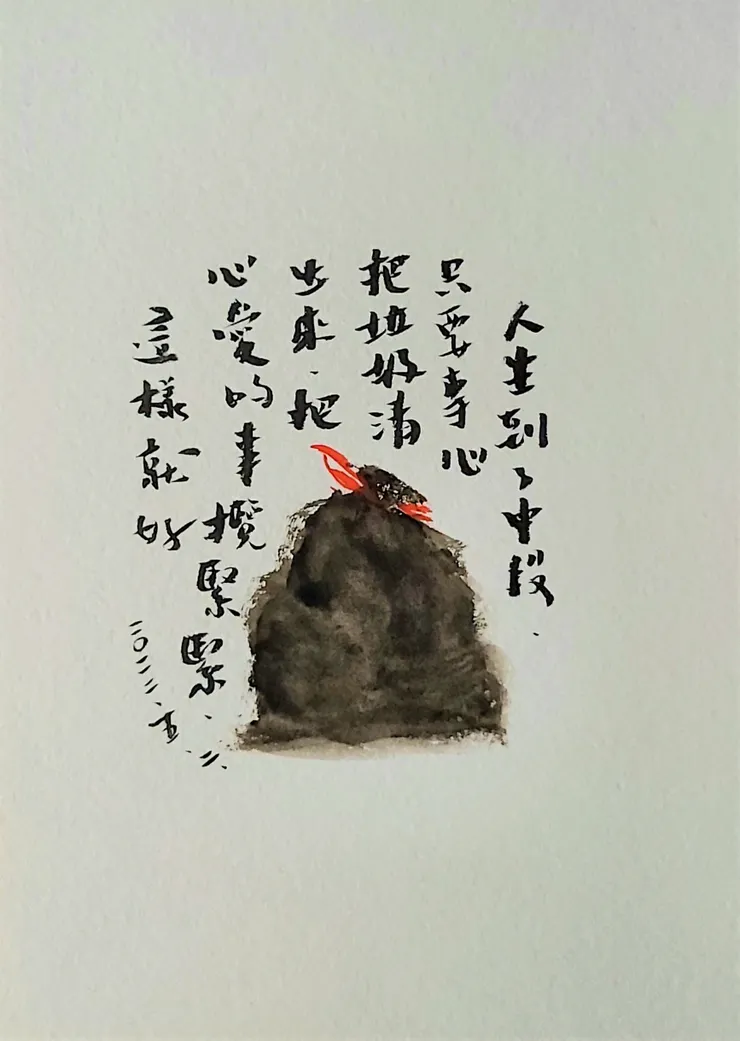 人生到了中段.
只要專心
把垃圾清
出來.把
心愛的事攬緊緊.
這樣就好
二〇二二.五.二.